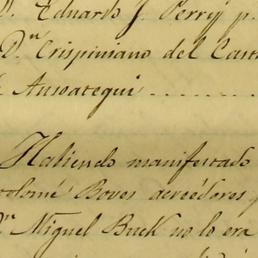 D. Eduardo J. Perry p.
D.ⁿ Crispiniano del Cast
Ansoategui ........
Haliendo manifestado
tolomé Boves acreédores
Dⁿ Miguel Buck no lo era